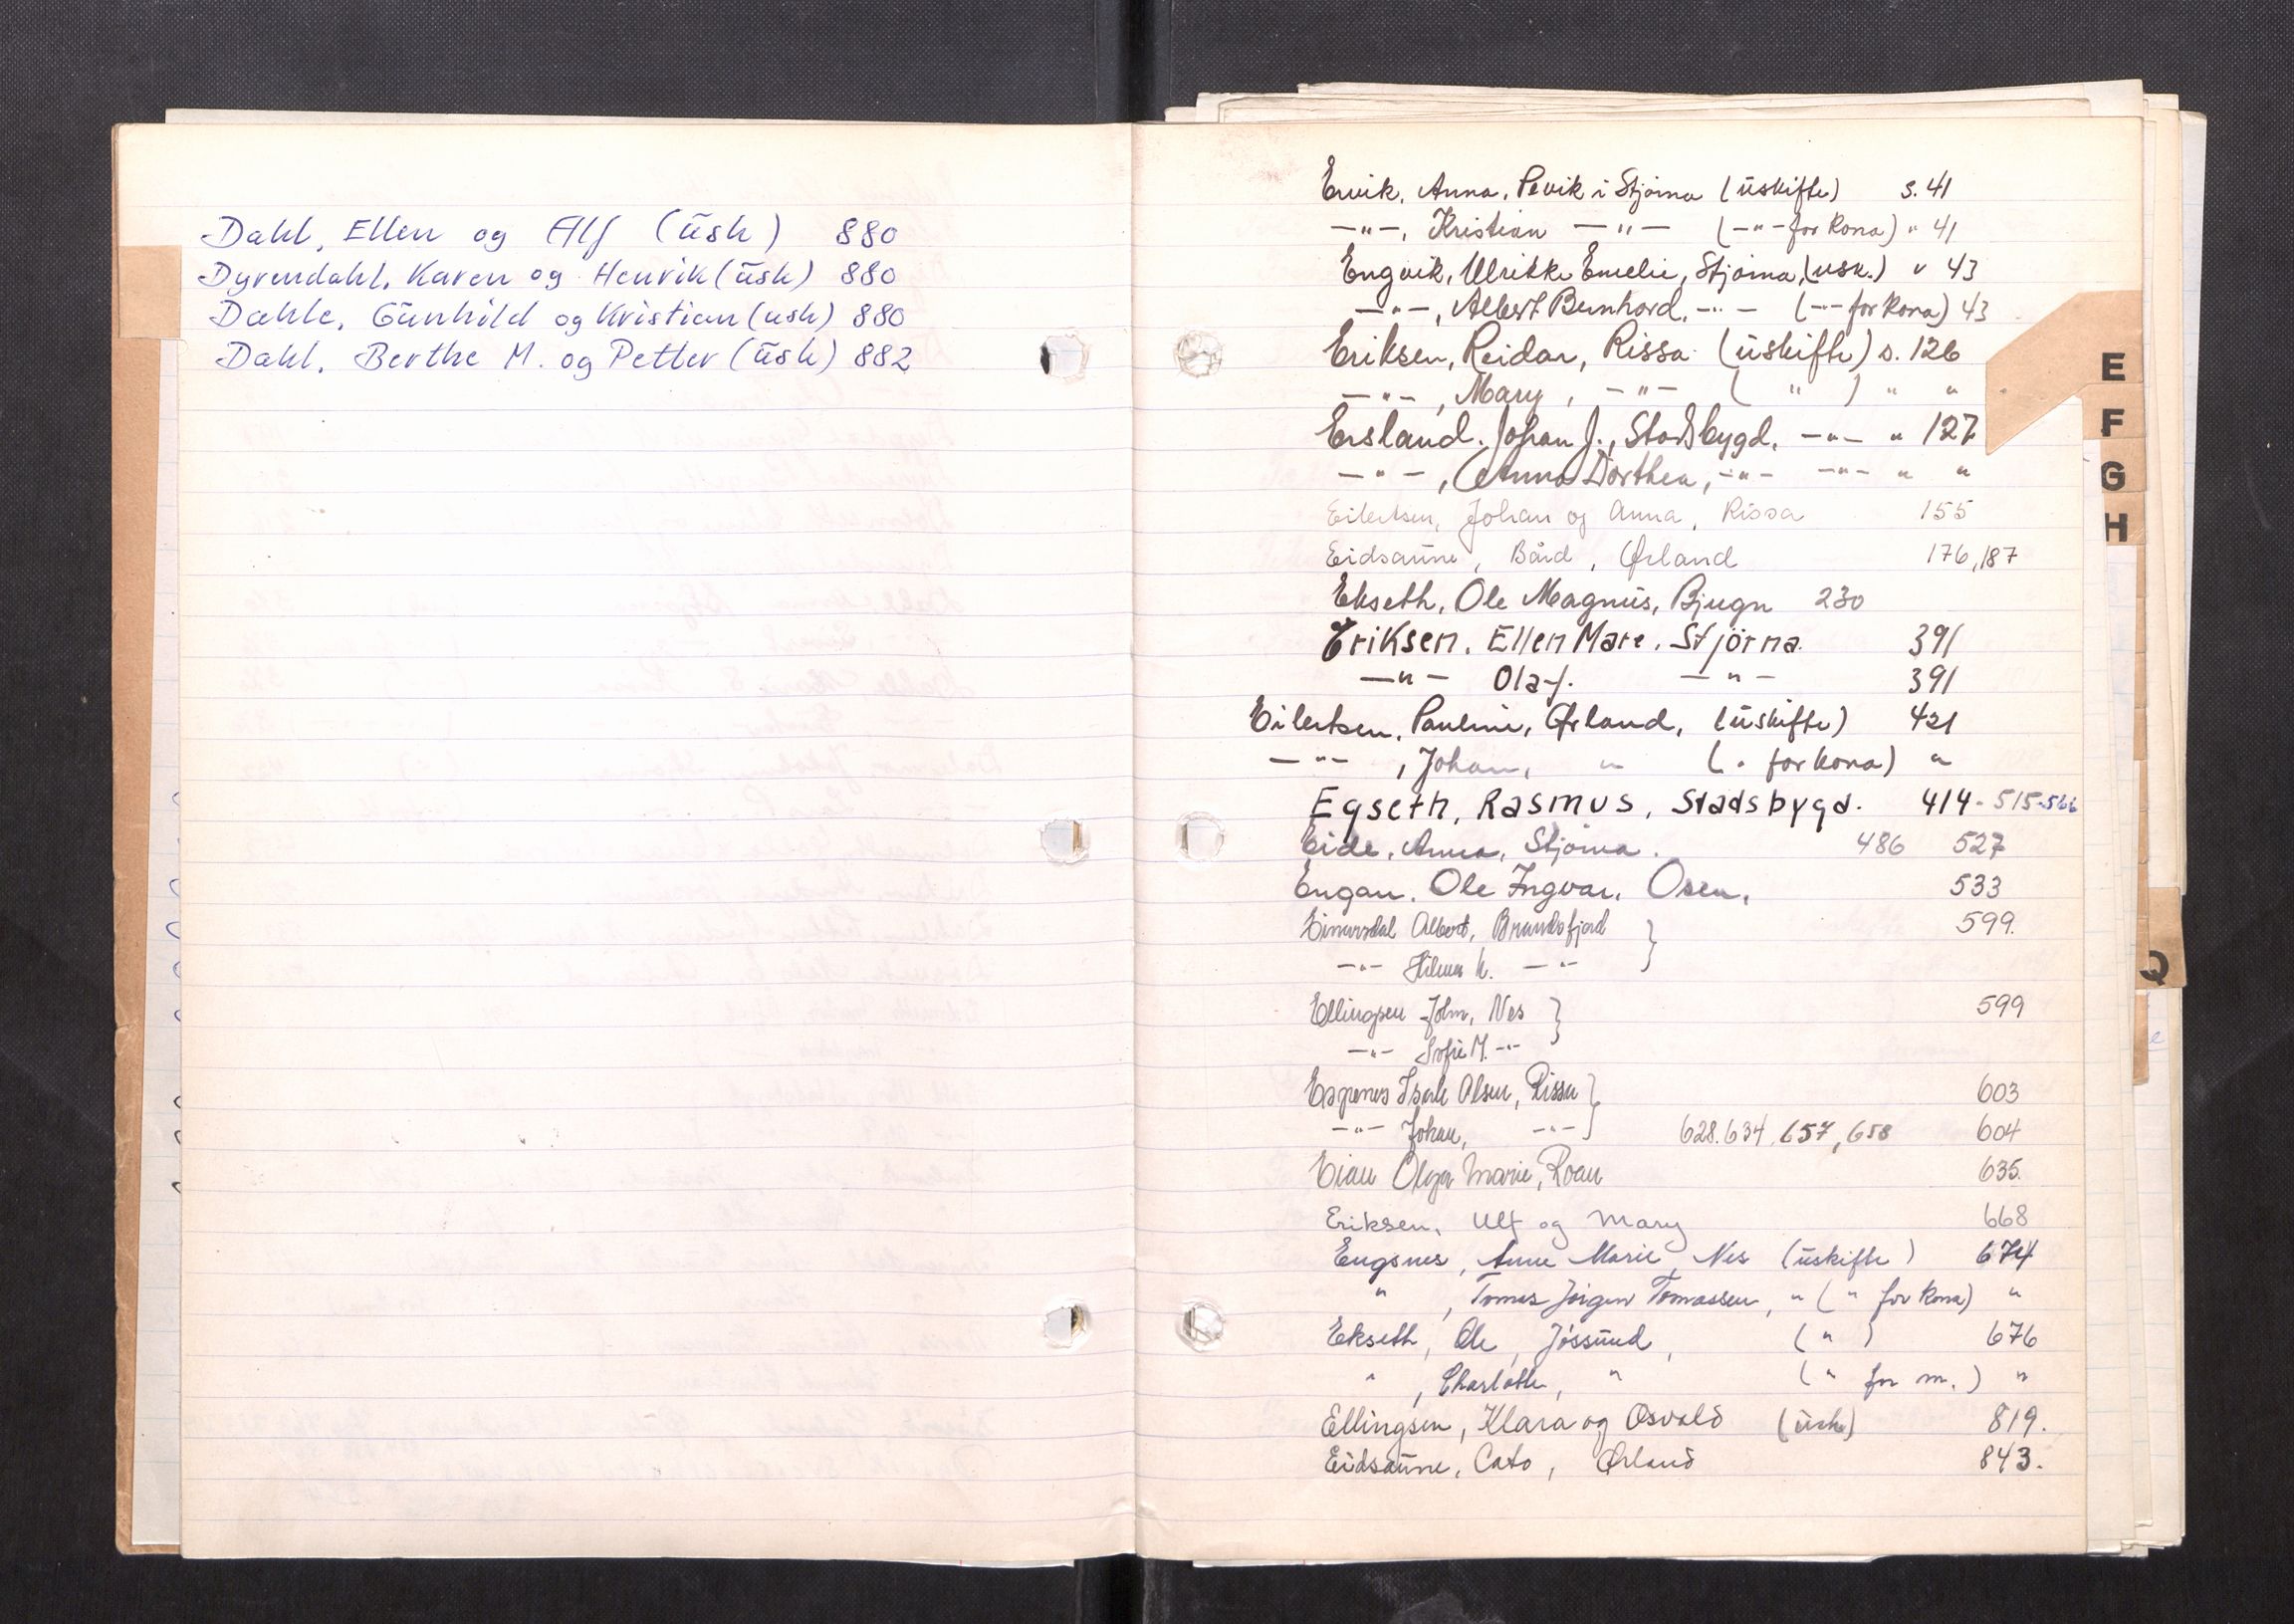 Dahl, Ellen og Alf (ūsk) 880
Dyrendahl, Karen og Henrik (ūsk) 880
Dahle, Gūnhild og Kristian (usk) 880
Dahl, Berthe M. og Petter (ūsk) 882
Ervik, Anna, i Stjørna (ūskifte) s. 41
—"—, Kristian —"— (—"— for kona) " 41
Engvik, Ulrikke Emelie, Stjørna, (usk.) " 43
—"—, Albert Bernhard, —"— (—"— for kona) 43
Eriksen, Reidar, Rissa (ūskifte) s. 126
—"—, Mary, —"— ( " ) " "
Ersland, Johan J., Stadsbygd, —"— " 127
—"—, Anna Dorthea, —"— —"— " "
Eilertsen, Johan og Anna, Rissa 155
Eidsaūne, Bård, Ørland 176, 187
Ekseth, Ole Magnūs, Bjugn 230
Eriksen, Ellen Mare, Stjörna 391
—"— Olaf. —"— 391
Eilertsen, Pauline, Ørland, (ūskifte) 421
—"—, Johan, " ( " for kona) "
Egseth, Rasmus, Stadsbygd. 414 - 515 - 566
Eide, Anna, Stjørna. 486 527
Engan, Ole Ingvar, Osen, 533
Einarsdal Albert, Brandsfjord } 599.
—"— Hilmar K. —"—
Ellingsen John, Nes } 599
—"— Sofie M. —"—
Espenes Olsen, Rissa } 603
—"— Johan, —"— 628. 634, 657, 658 604
Eian Olga Marie, Roan 635.
Eriksen, Ulf og Mary 668
Engsnes, Anne Marie, Nes (ūskifte) 674
" , Tomas Jørgen Tomassen, " ( " for kona) "
Ekseth, Ole, Jøssūnd, ( " ) 676
" , Charlotte, " ( " for m.) "
Ellingsen, Klara og Osvald (ūsk) 819.
Eidsaūne, Cato, Ørland 843.
E
F
G
H
Q